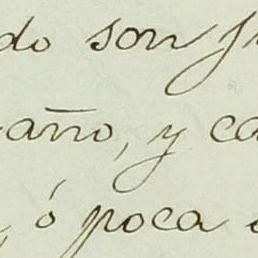 do son
año, y ca
, ó poca